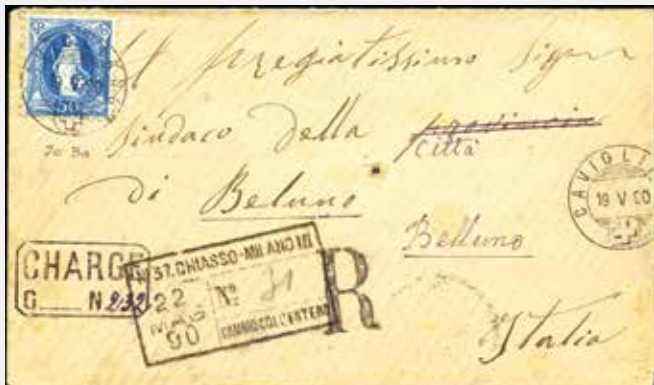 Al Pregiatissimo Signor
Sindaco della provincia
Città
di Beluno
Belluno
Italia
50
CAVIGLI
19 V 90
CHARGE
G N 232
57. CHIASSO-MILANO III
22 MAG 90
Nº 31
R